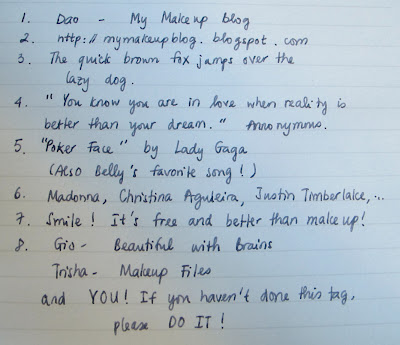 1. Dao - My Makeup blog
2. http://mymakeupblog.blogspot.com
3. The quick brown fox jumps over the
lazy dog.
4. "You know you are in love when reality is
better than your dream." Anonymms.
5. "Poker Face" by Lady Gaga
(Also Belly's favorite song!)
6. Madonna, Christina Aguleira, Justin Timberlake,...
7. Smile! It's free and better than makeup!
8. Gio- Beautiful with Brains
Trisha- Makeup Files
and YOU! If you haven't done this tag,
please DO IT!